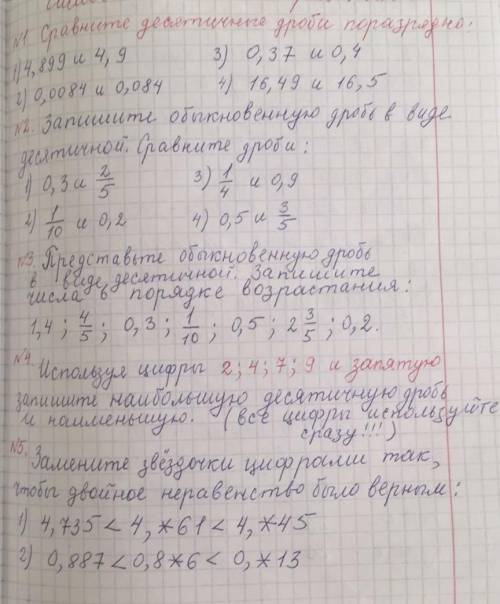 №1. Сравните десятичные дроби поразрядно:
1) 4,899 и 4,9 3) 0,37 и 0,4
2) 0,0084 и 0,084 4) 16,49 и 16,5
№2. Запишите обыкновенную дробь в виде
десятичной. Сравните дроби:
1) 0,3 и 2/5 3) 1/4 и 0,9
2) 1/10 и 0,2 4) 0,5 и 3/5
№3. Представьте обыкновенную дробь
в виде десятичной. Запишите
числа в порядке возрастания:
1,4; 4/5; 0,3; 1/10; 0,5; 2 3/5; 0,2.
№4 Используя цифры 2; 4; 7; 9 и запятую
запишите наибольшую десятичную дробь
и наименьшую. (все цифры используйте
сразу!!!)
№5. Замените звёздочки цифрами так,
чтобы двойное неравенство было верным:
1) 4,735 < 4,*61 < 4,*45
2) 0,887 < 0,8*6 < 0,*13